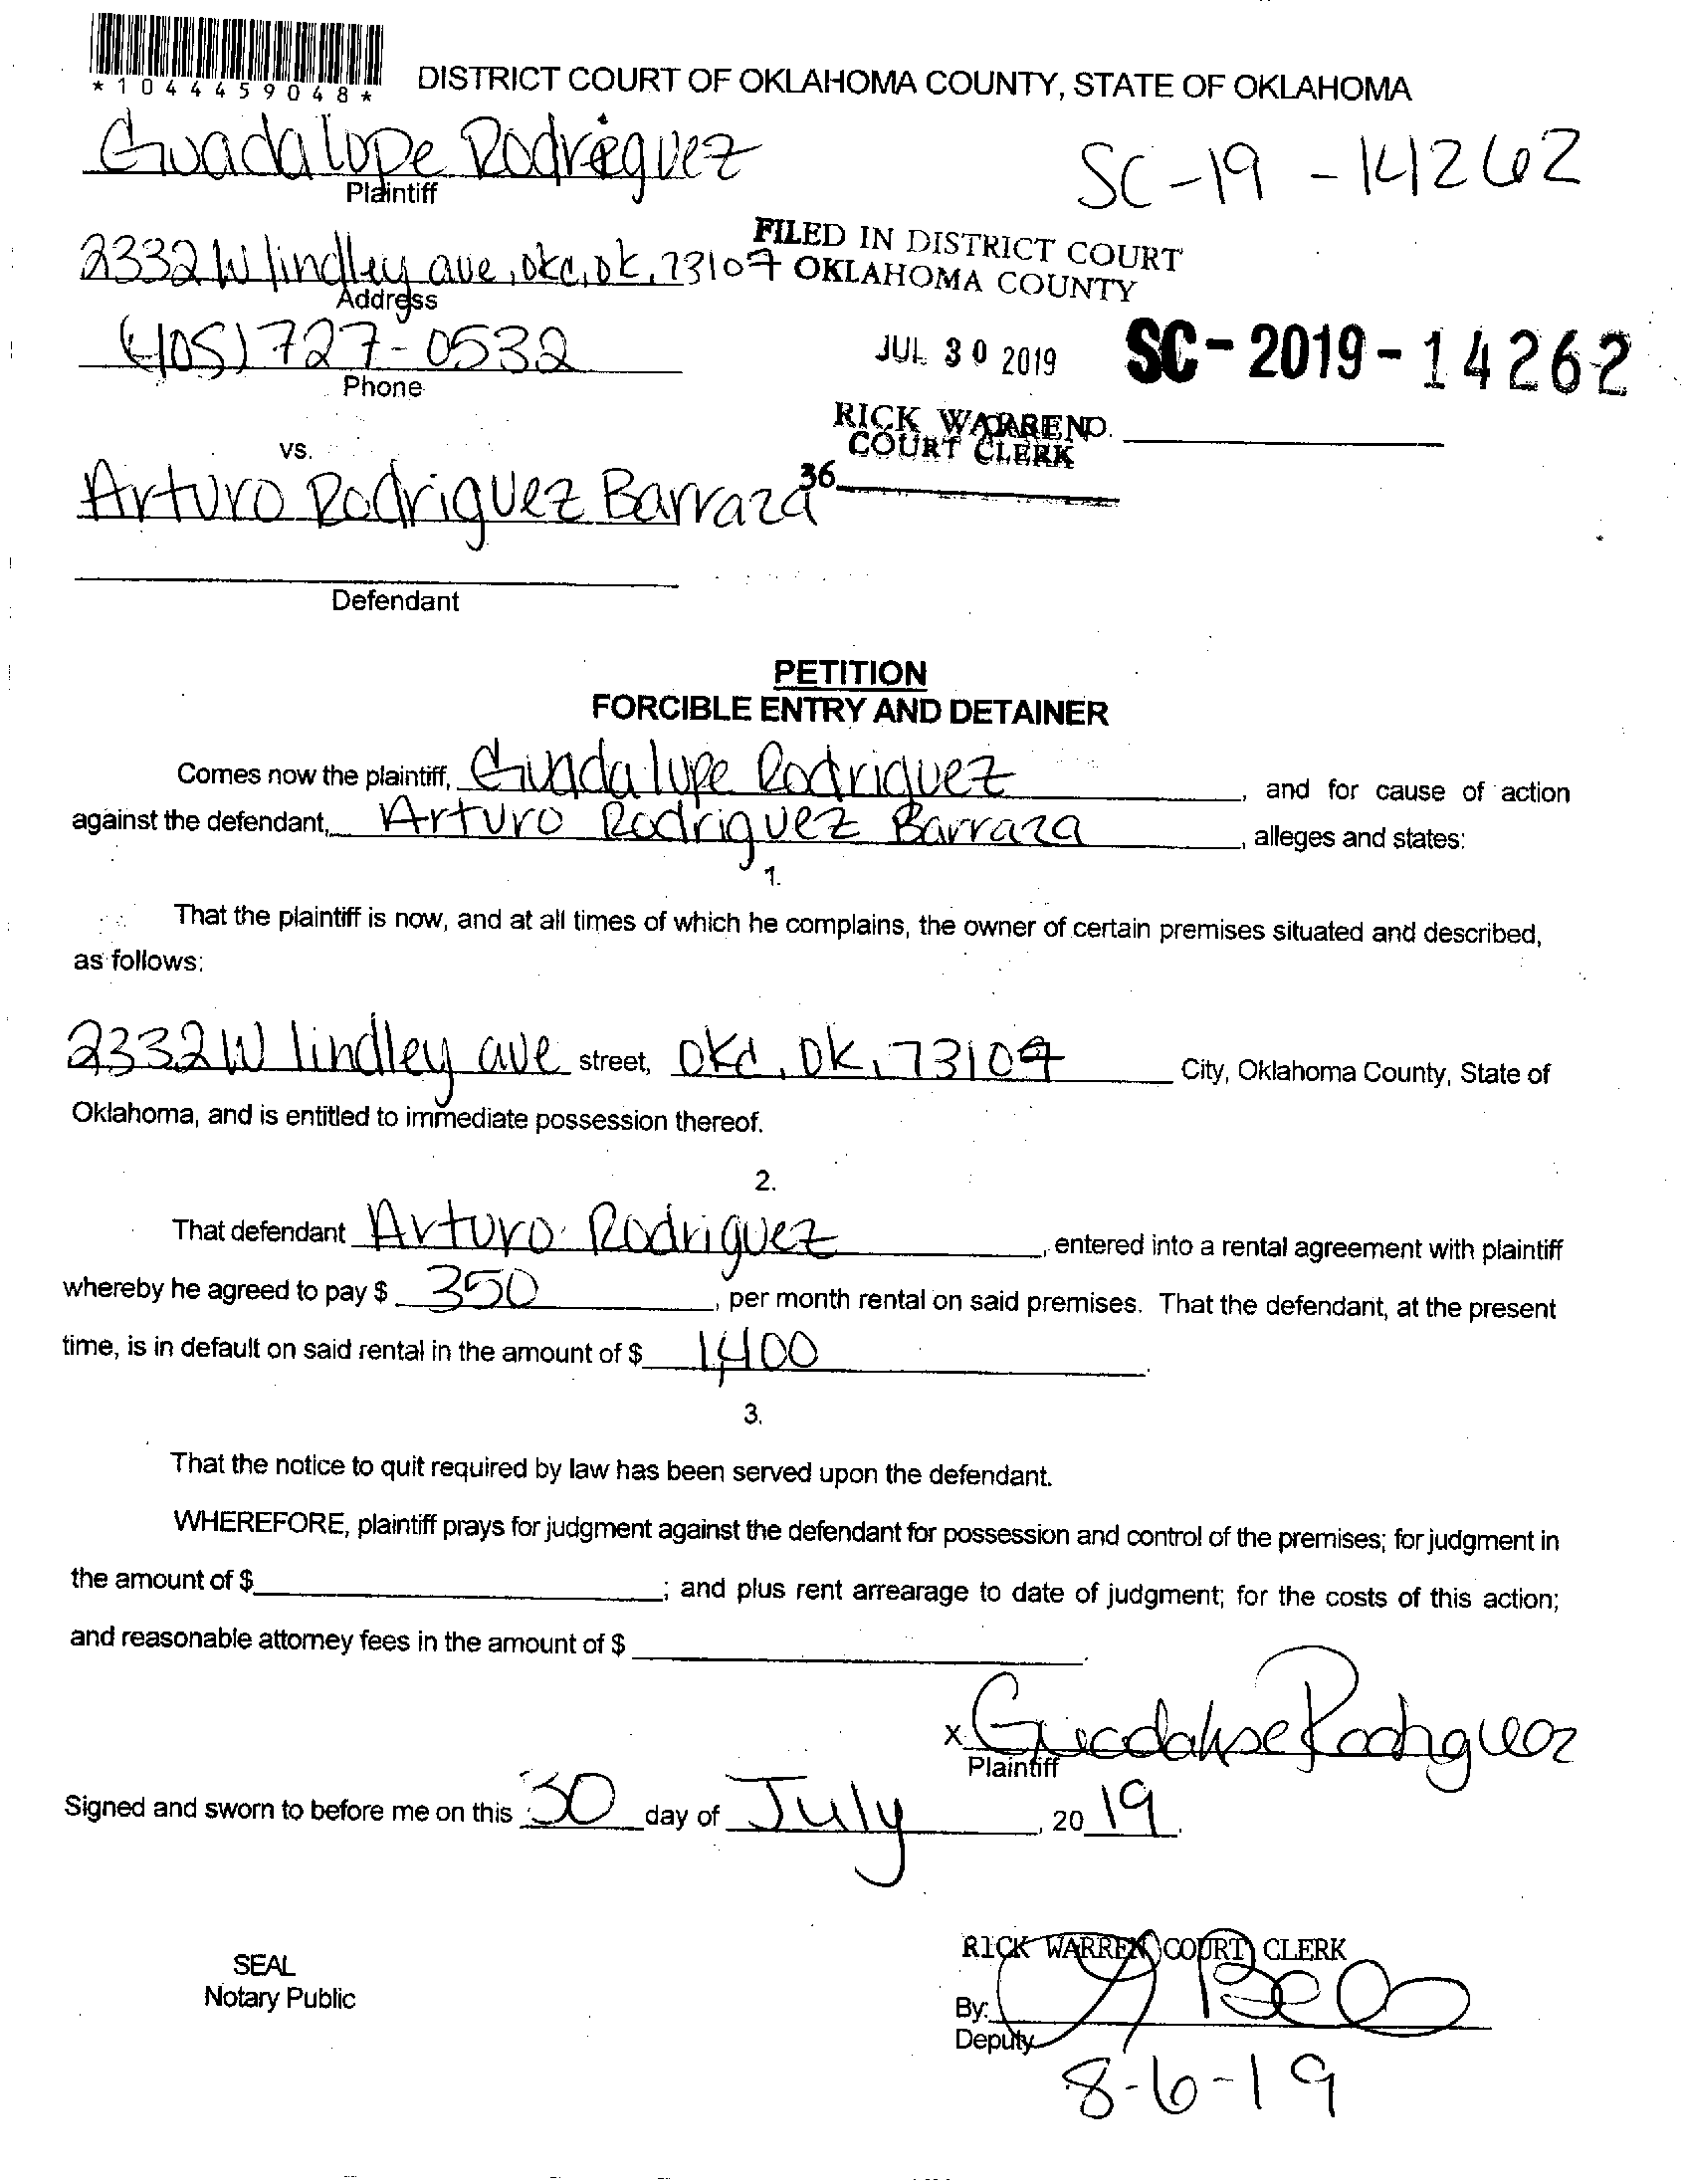 *1044459048*
DISTRICT COURT OF OKLAHOMA COUNTY, STATE OF OKLAHOMA
Guadalupe Rodriguez
Plaintiff
SC-19-14262
2332 W lindley ave, okc, ok, 73107
Address
FILED IN DISTRICT COURT
OKLAHOMA COUNTY
(405) 727-0532
Phone
JUL 30 2019
SC-2019-14262
RICK WARREN
COURT CLERK
NO.
vs.
36
Arturo Rodriguez Barraza
Defendant
PETITION
FORCIBLE ENTRY AND DETAINER
Comes now the plaintiff, Guadalupe Rodriguez, and for cause of action
against the defendant, Arturo Rodriguez Barraza, alleges and states:
1.
That the plaintiff is now, and at all times of which he complains, the owner of certain premises situated and described,
as follows:
2332 W lindley ave street, okc, ok, 73107 City, Oklahoma County, State of
Oklahoma, and is entitled to immediate possession thereof.
2.
That defendant Arturo Rodriguez, entered into a rental agreement with plaintiff
whereby he agreed to pay $ 350, per month rental on said premises. That the defendant, at the present
time, is in default on said rental in the amount of $ 1,400.
3.
That the notice to quit required by law has been served upon the defendant.
WHEREFORE, plaintiff prays for judgment against the defendant for possession and control of the premises; for judgment in
the amount of $; and plus rent arrearage to date of judgment; for the costs of this action;
and reasonable attorney fees in the amount of $.
x Guadalupe Rodriguez
Plaintiff
Signed and sworn to before me on this 30 day of July, 20 19.
RICK WARREN COURT CLERK
SEAL
Notary Public
By:
Deputy
8-6-19